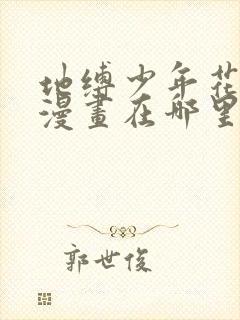 地缚少年花
漫畫在哪里
郭世俊